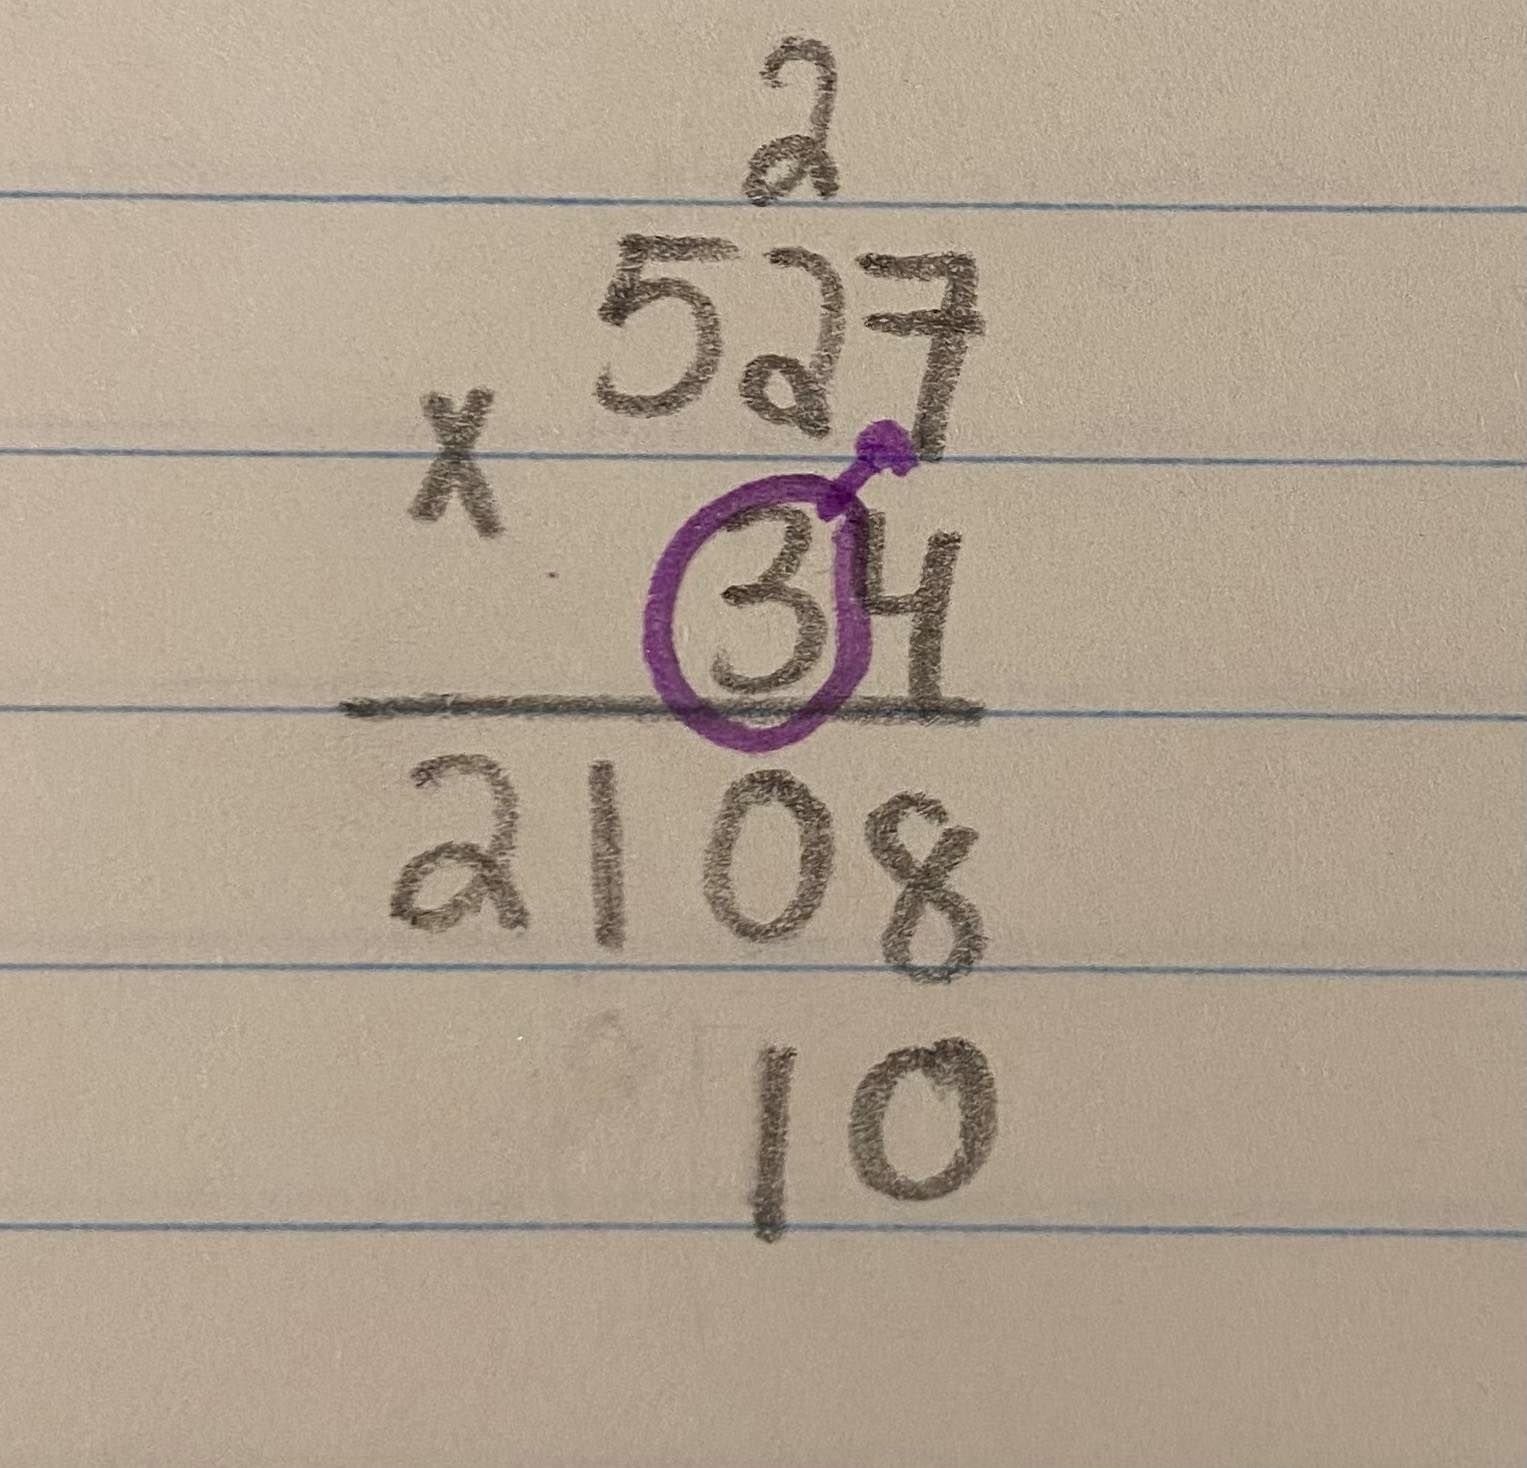 2
527
x
34
2108
10